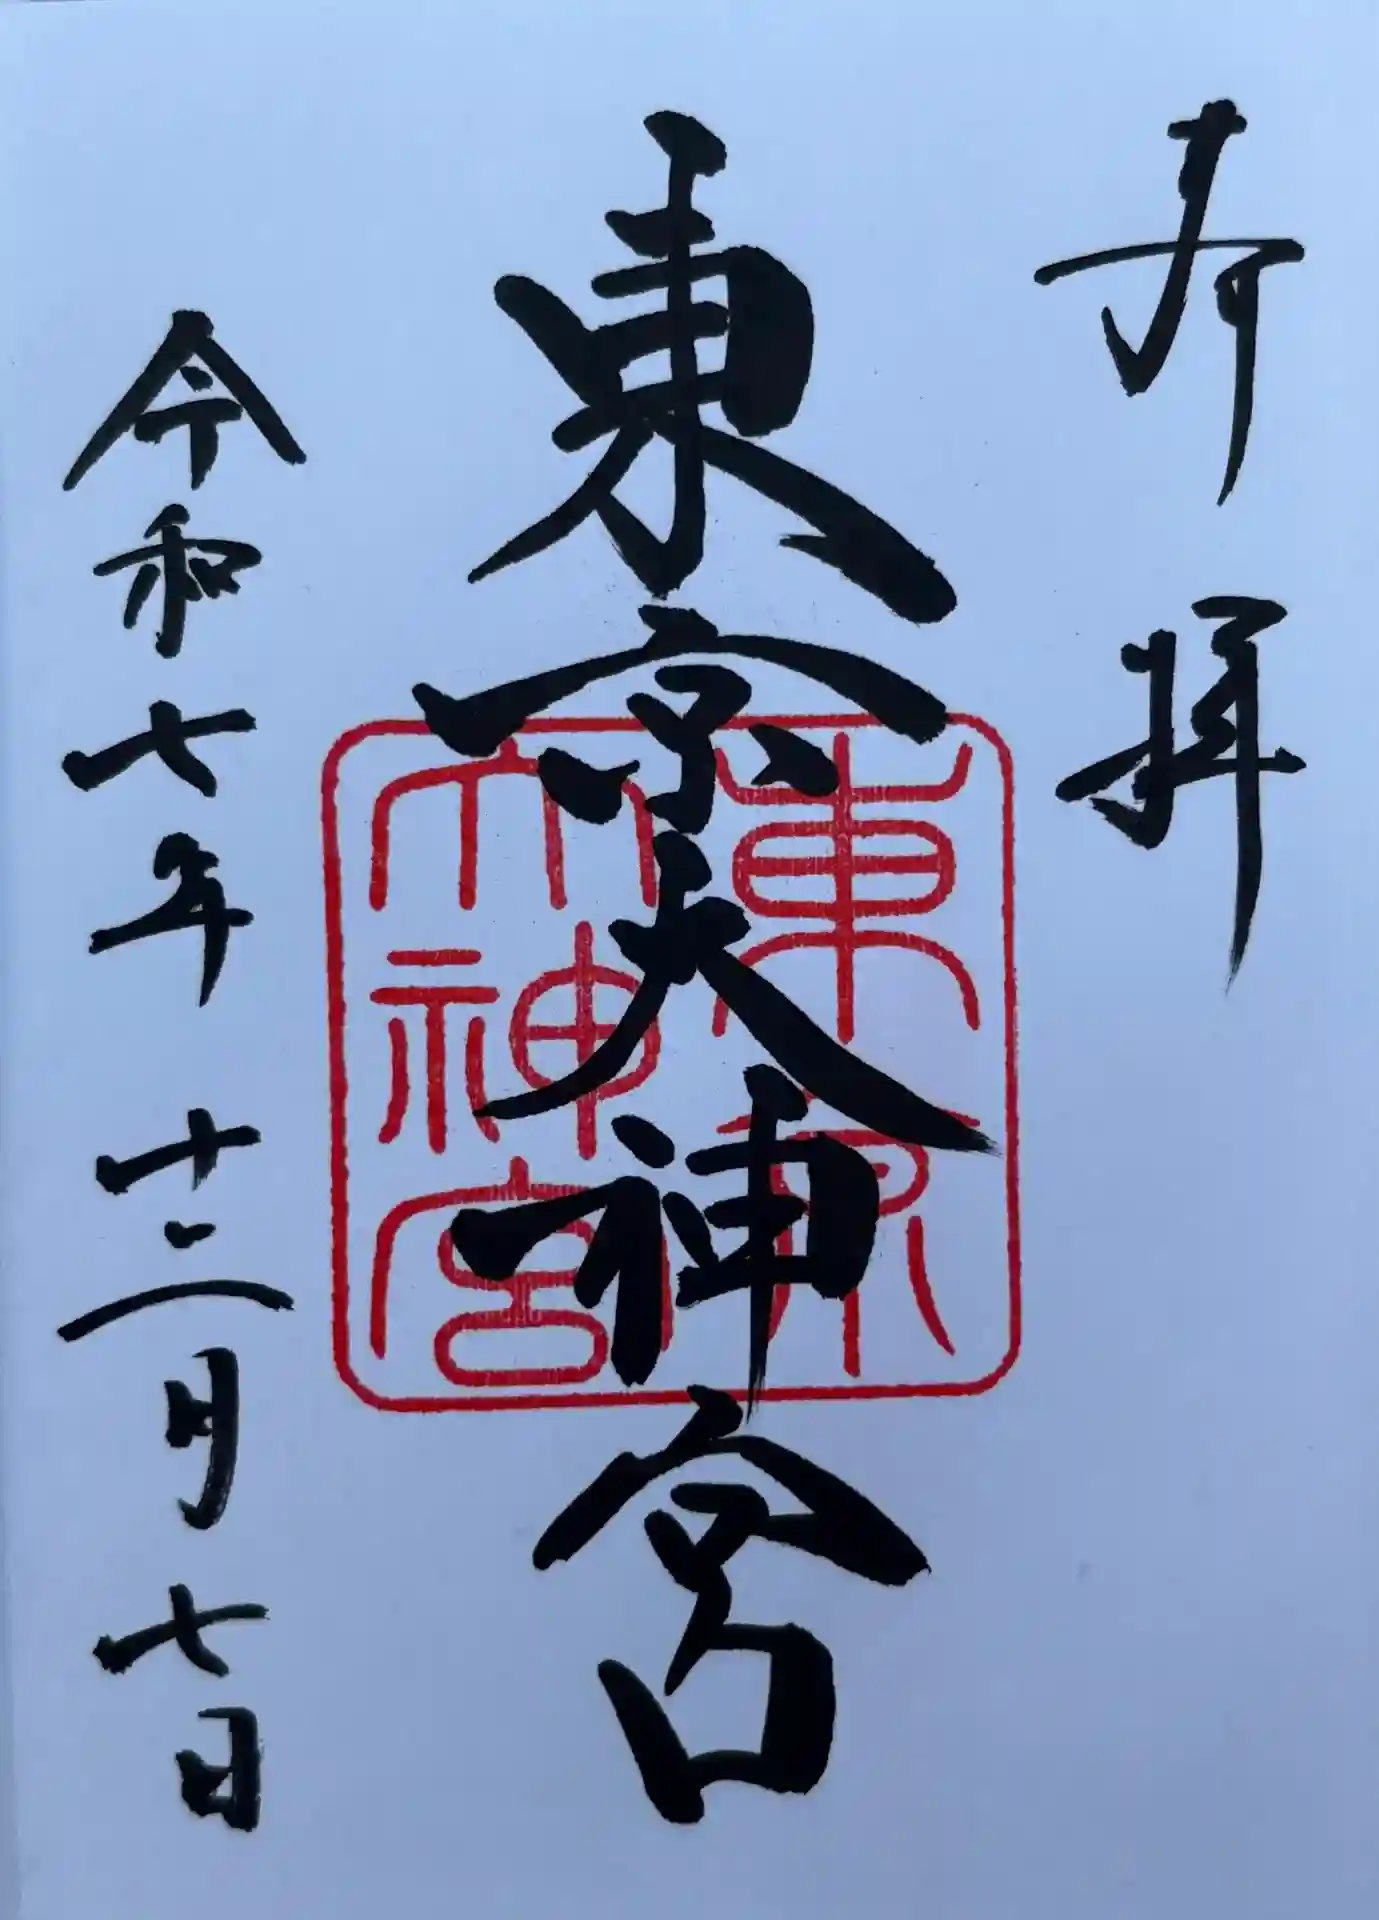 奉拝
東京大神宮
東京
大神宮
令和七年 十二月七日